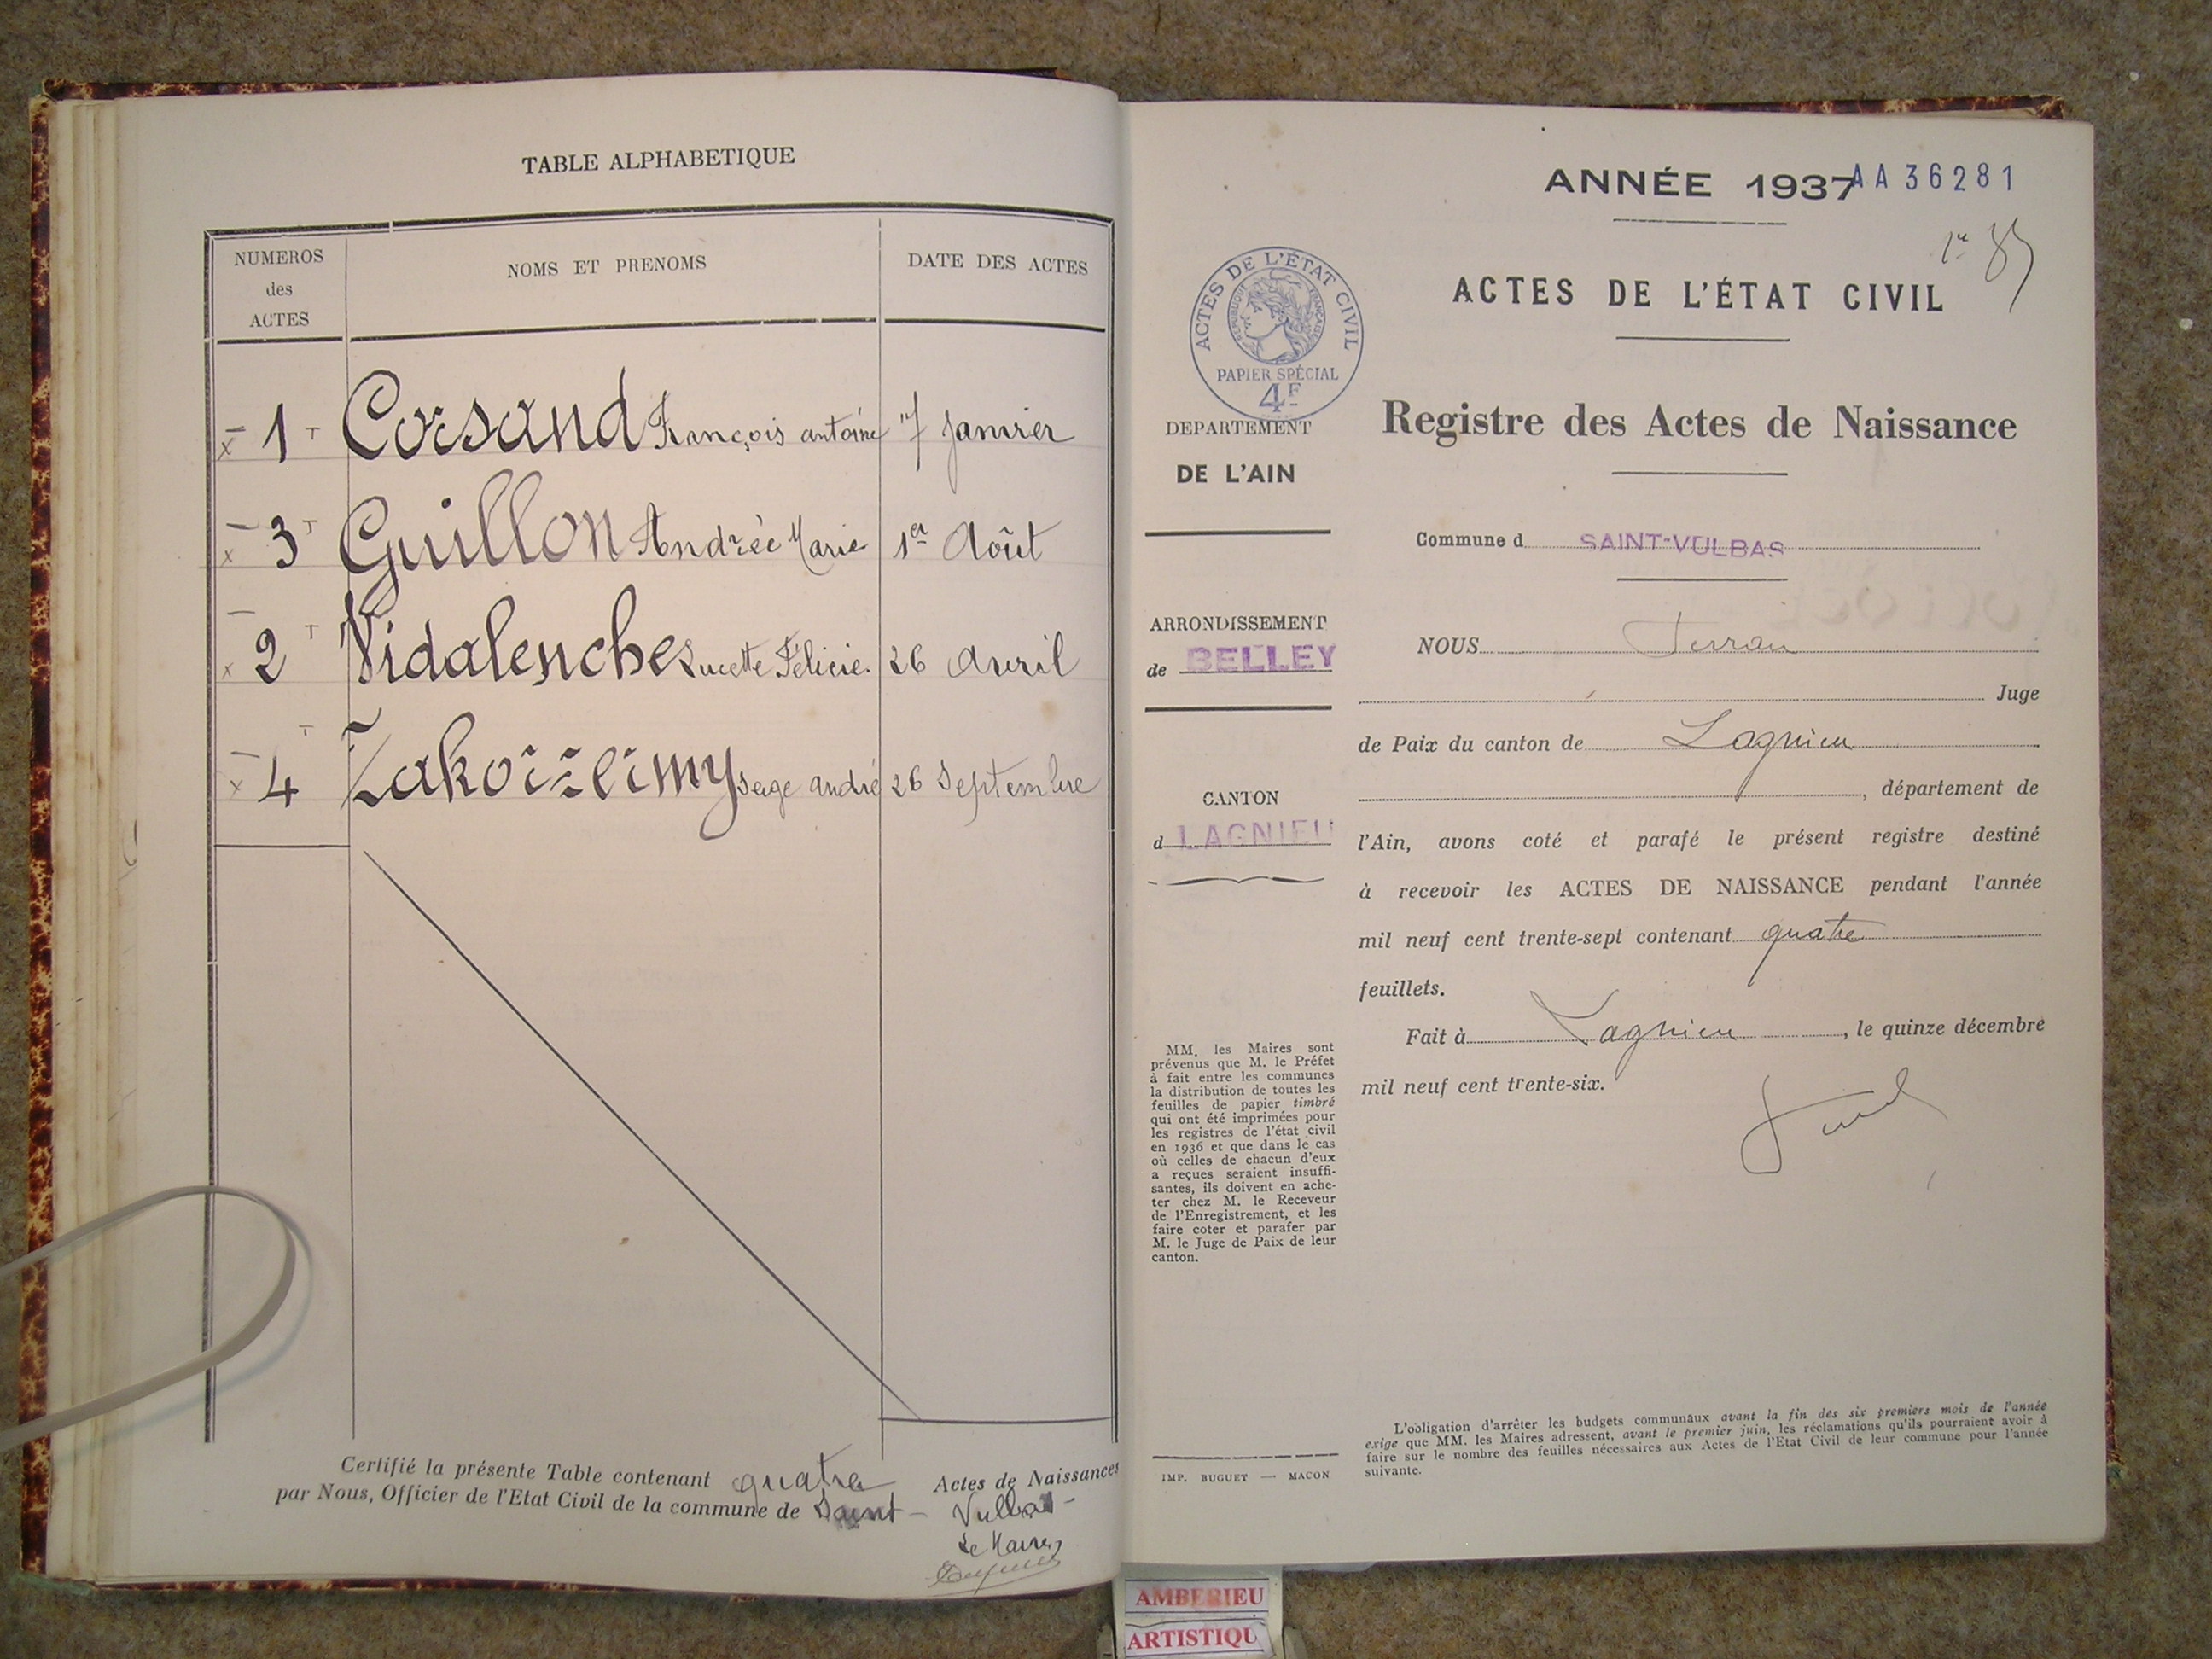 TABLE ALPHABETIQUE
NUMEROS des ACTES
NOMS ET PRENOMS
DATE DES ACTES
1 Corsand François antoine 7 Janvier
3 Guillon Andrée Marie 1er Août
2 Vidalenche Lucette Félicie. 26 Avril
4 Zakoïzeimy Serge André 26 Septembre
Certifié la présente Table contenant quatre Actes de Naissances
par Nous, Officier de l'Etat Civil de la commune de Saint-Vulbas-
Le Maire
ANNÉE 1937
AA 36281
ACTES DE L'ÉTAT CIVIL
ACTES DE L'ÉTAT CIVIL
RÉPUBLIQUE FRANÇAISE
PAPIER SPÉCIAL
4F
Registre des Actes de Naissance
DEPARTEMENT
DE L'AIN
Commune d SAINT-VULBAS
ARRONDISSEMENT
de BELLEY
CANTON
d LAGNIEU
NOUS
Juge
de Paix du canton de Lagnieu
, département de
l'Ain, avons coté et parafé le présent registre destiné
à recevoir les ACTES DE NAISSANCE pendant l'année
mil neuf cent trente-sept contenant quatre
feuillets.
Fait à Lagnieu, le quinze décembre
mil neuf cent trente-six.
MM. les Maires sont
prévenus que M. le Préfet
à fait entre les communes
la distribution de toutes les
feuilles de papier timbré
qui ont été imprimées pour
les registres de l'état civil
en 1936 et que dans le cas
où celles de chacun d'eux
a reçues seraient insuffi-
santes, ils doivent en ache-
ter chez M. le Receveur
de l'Enregistrement, et les
faire coter et parafer par
M. le Juge de Paix de leur
canton.
IMP. BUGUET — MACON
L'obligation d'arrêter les budgets communaux avant la fin des six premiers mois de l'année
exige que MM. les Maires adressent, avant le premier juin, les réclamations qu'ils pourraient avoir à
faire sur le nombre des feuilles nécessaires aux Actes de l'Etat Civil de leur commune pour l'année
suivante.
AMBERIEU
ARTISTIQU